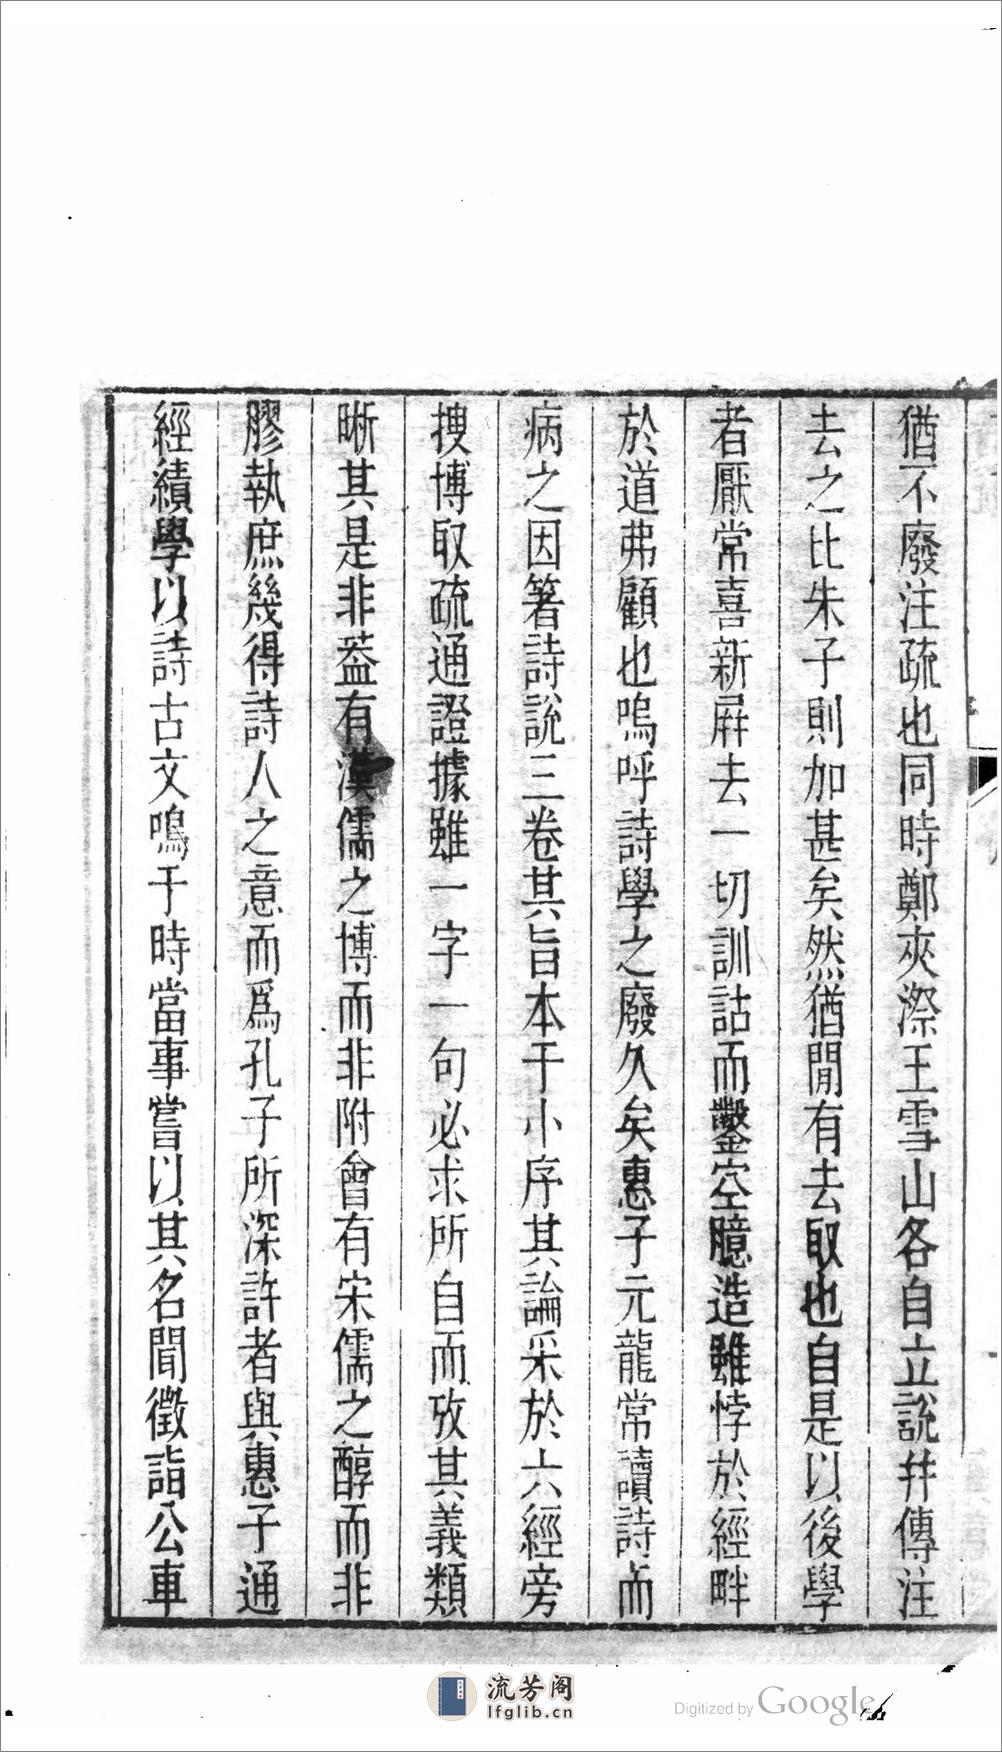 猶不廢注疏也同時鄭夾漈王雪山各自立說幷傳注
去之比朱子則加甚矣然猶閒有去取也自是以後學
者厭常喜新屛去一切訓詁而鑿空臆造雖悖於經畔
於道弗顧也嗚呼詩學之廢久矣惠子元龍常讀詩而
病之因著詩說三卷其旨本于小序其論采於六經旁
搜博取疏通證據雖一字一句必求所自而攷其義類
晰其是非葢有漢儒之博而非附會有宋儒之醇而非
膠執庶幾得詩人之意而爲孔子所深許者與惠子通
經績學以詩古文鳴于時當事嘗以其名聞徵詣公車
流芳阁
lfglib.cn
Digitized by Google